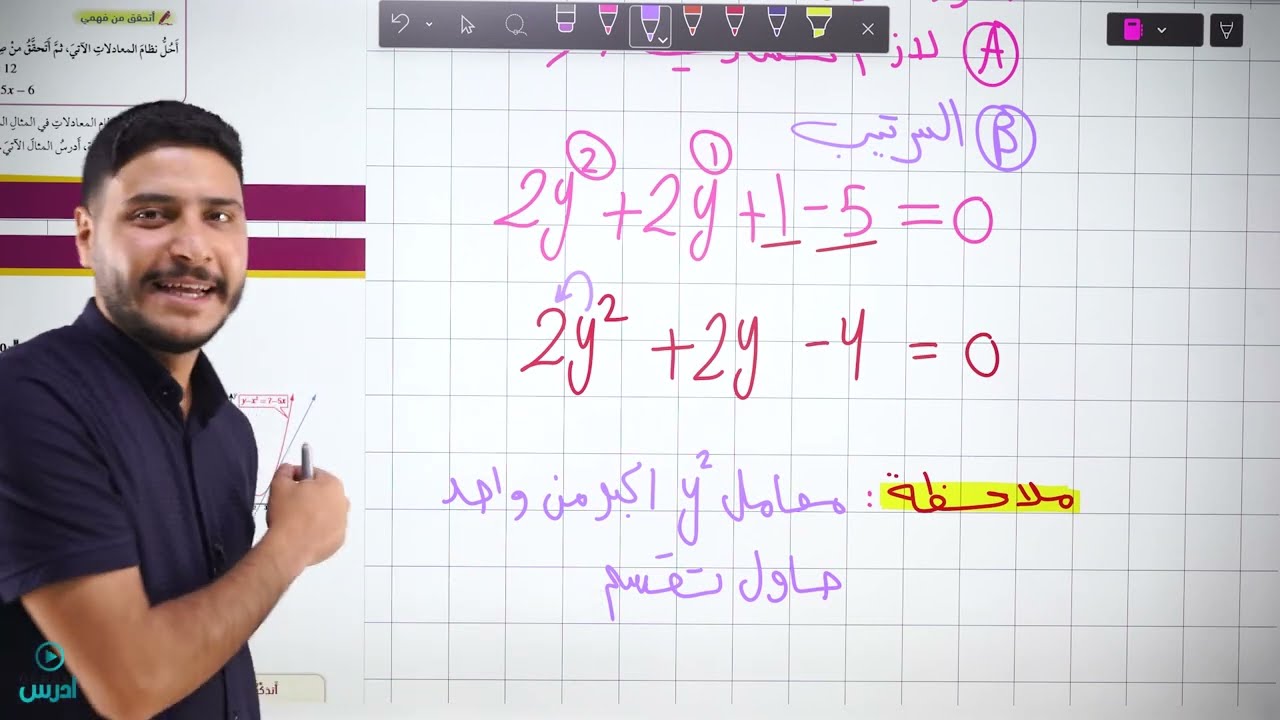 أتحقق من فهمي
أَحُلُّ نظامَ المعادلاتِ الآتيَ، ثمَّ أتحقَّقُ منْ
12
5x – 6
المعادلاتِ في المثالِ
، أَدرسُ المثالَ الآتيَ
y–x²=7–5x
أتذكّ
ادرس
Ⓐ لازم
Ⓑ الترتيب
② ①
2y² + 2y + 1 – 5 = 0
2y² + 2y – 4 = 0
ملاحظة : معامل y² اكبر من واحد
حاول تقسم